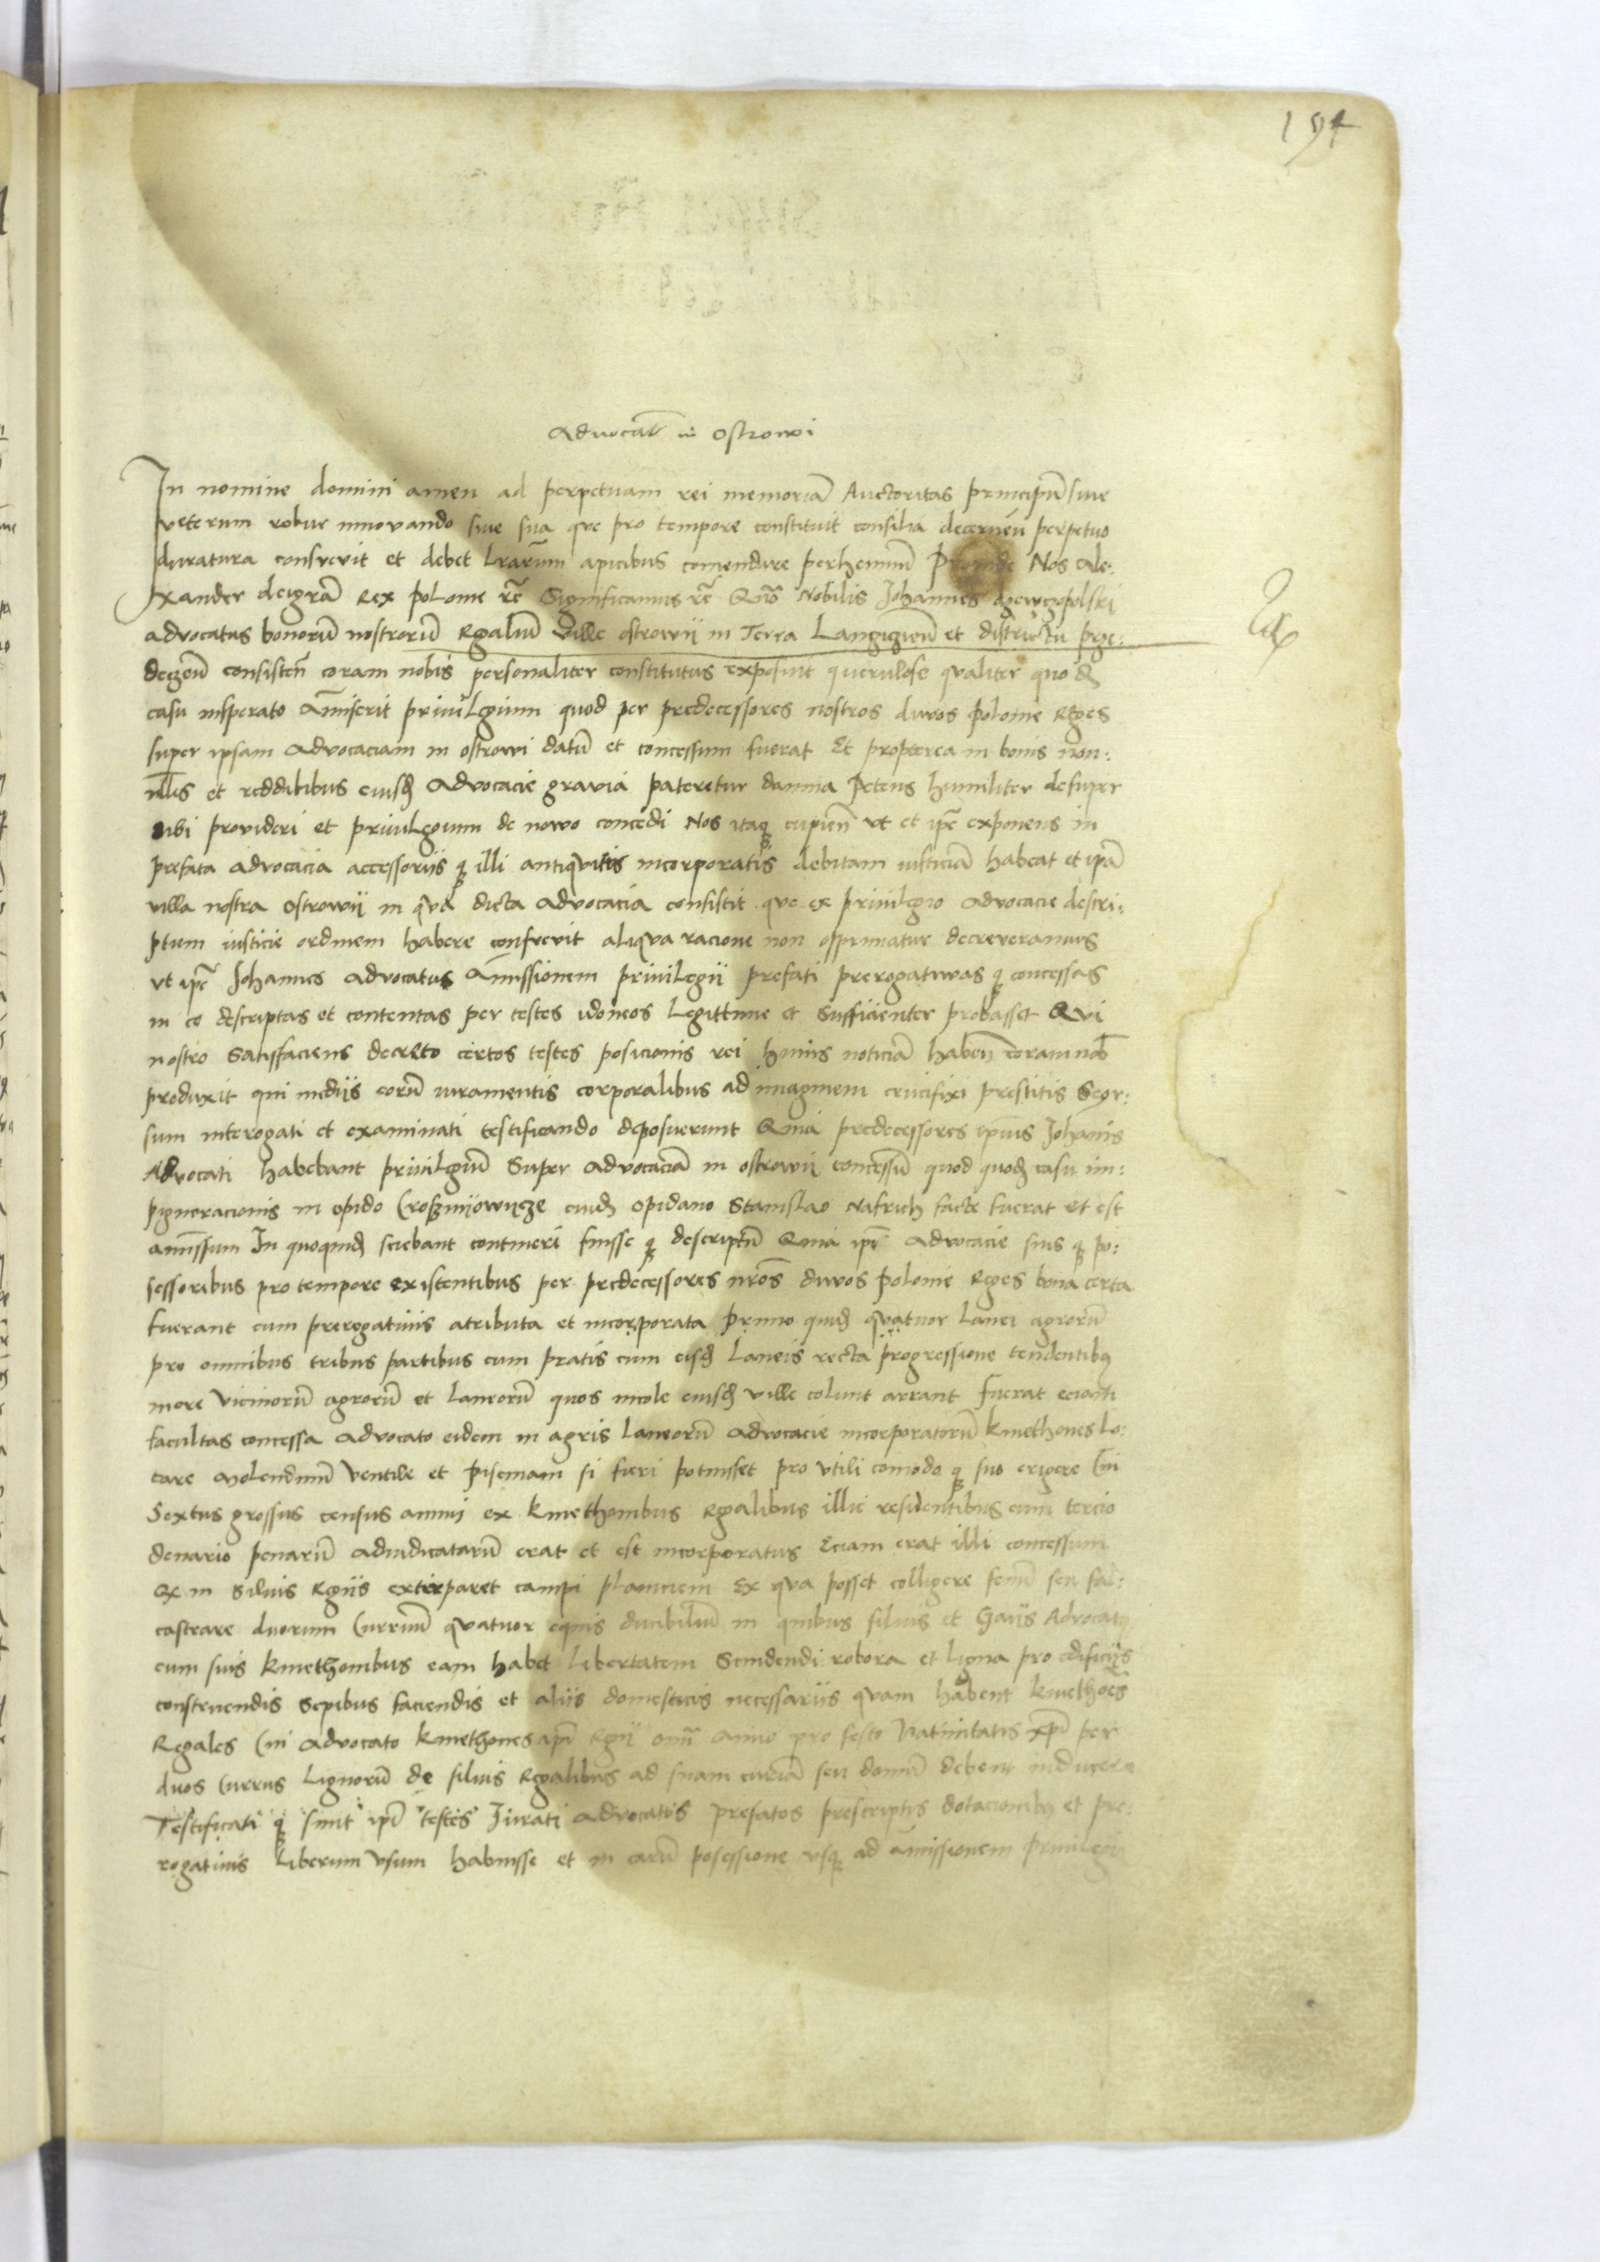 194
Advocat in Ostrowi
In nomine domini amen ad perpetuam rei memoriā Auctoritas principū sive
veterum robur innovando sive sua que pro tempore constituit consilia decernen̄ perpetuo
duratura consvevit et debet lrarum apicibus comendare perhennium Proinde Nos Ale:
xander dei grā Rex polonie rc̄ Significamus rc̄ Quō Nobilis Johannes
advocatus bonorū nostrorū Rgalium ville ostrowii in Terra Lanczicien̄ et districtu
consisten̄ coram nobis personaliter constitutus exposuit querulose qualiter quodā
casu insperato āmiserit privilegium quod per predecessores nostros divos polonie Rges
super ipsam Advocaciam in ostrowi datū et concessum fuerat Et propterea in bonis non:
nllis et redditibus eiusd Advocacie gravia pateretur damna Petens humiliter desuper
sibi provideri et privilegium de nowo concedi Nos itaq cupien̄ vt et ipe exponens in
prefata advocacia accessoriis q illi antiquitis incorporatis debitam iusticiā habeat et ipā
villa nostra Ostrowii in qua dicta Advocacia consistit que ex privilegio advocacie descri:
ptum iusticie ordinem habere consvevit aliqua racione non opprimatur decreveramus
vt ipe Johannes advocatus āmissionem privilegii prefati prerogativas q concessas
in eo descriptas et contentas per testes idoneos Legittime et Sufficienter probasset Qvi
nostro Satisfaciens decreto certos testes posicionis rei huius noticiā haben̄ coram nob
produxit qui mediis eorū iuramentis corporalibus ad imaginem crucifixi prestitis Seor:
sum interogati et examinati testificando deposuerunt Quia predecessores ipius Johānis
Advocati habebant privilgiū Super advocaciā in ostrowii concessū quod quodā casu im:
pignoracionis in opido eiusd opidano Stanislao facte fuerat et est
amissum In quoquid sciebant contineri fuisse q descriptū Quia ipi Advocacie suis q po:
sessoribus pro tempore existentibus per predecessores nros divos polonie Reges bona certa
fuerant cum prerogativis atributa et incorporata Primo quid quatuor lanei agrorū
pro omnibus tribus partibus cum pratis cum eisd Laneis recta progressione tendentibus
more vicinorū agrorū et laneorū quos incole eiusd ville colunt arrant fuerat
facultas concessa Advocato eidem in agris laneorū advocacie incorporatorū kmethones lo:
care Molendinū Ventile et piscinam si fieri potuisset pro vtili comodo q suo erigere Cui
Sextus grossus census annui ex kmethonibus Rgalibus illic residentibus cum tercio
denario penarū adiudicatarū erat et est incorporatus Eciam erat illi concessum
Qx in silvis Rgiis exterparet campi planiciem Ex qua posset colligere fenū seu fal:
castrare duorum Curruū quatuor equis ducibiliū in quibus silvis et Gaiis Advocatus
cum suis kmethonibus eam habet libertatem Scindendi robora et ligna pro edificiis
construendis Sepibus faciendis et aliis domesticis necessariis quam habent kmethoes
Regales Cui advocato kmethones ipi Rgii omi Anno pro festo Nativitatis xpi per
duos Currus Lignorū de silvis Rgalibus ad suam curiā seu domū debent inducere
Testificati q sunt ipi testes Jurati advocatos prefatos prescriptis dotacionibs et pre:
rogativis Liberum vsum habuisse et in earū posessione vsq ad āmissionem privilegii